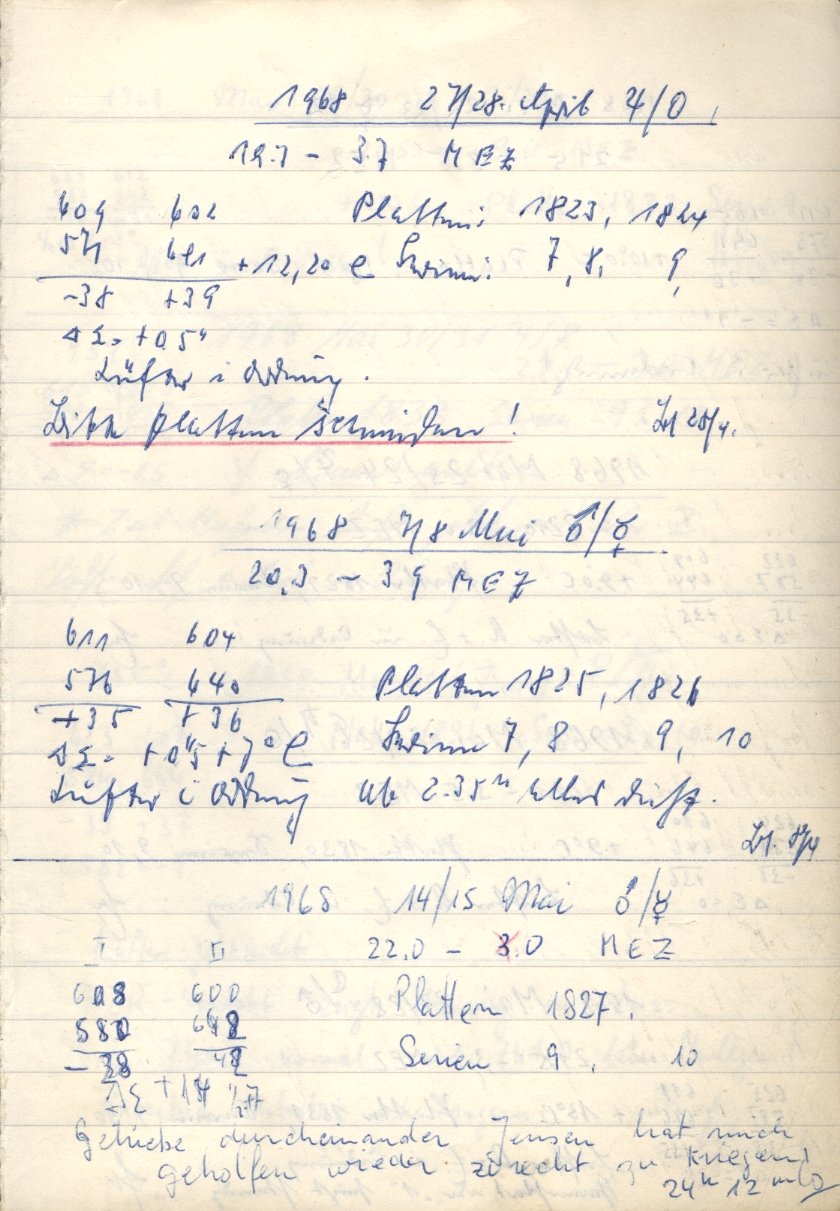 1968 27/28. April ♄/☉
19.7 – 3.7 MEZ
609 602 Platten: 1823, 1824
571 641 +12,20 C Serien: 7, 8, 9,
-38 +39
ΔΣ = +0.5"
Lüfter i Ordnung.
Bitte Platten schneiden!
1968 7/8 Mai ♂/☿
20.3 – 3.9 MEZ
611 604
576 640 Platten 1825, 1826
+35 +36 Serien 7, 8 9, 10
ΔΣ = +0.5 +7° C
Lüfter i Ordnung Ab 2.35ʰ alles dicht.
1968 14/15 Mai ♂/☿
22.0 – 3.0 MEZ
I II
608 600 Platten 1827.
580 642 Serien 9, 10
-28 42
ΔΣ +14
Getriebe durcheinander Jensen hat mich
geholfen wieder zurecht zu kriegen!
24ʰ 12ᵐ